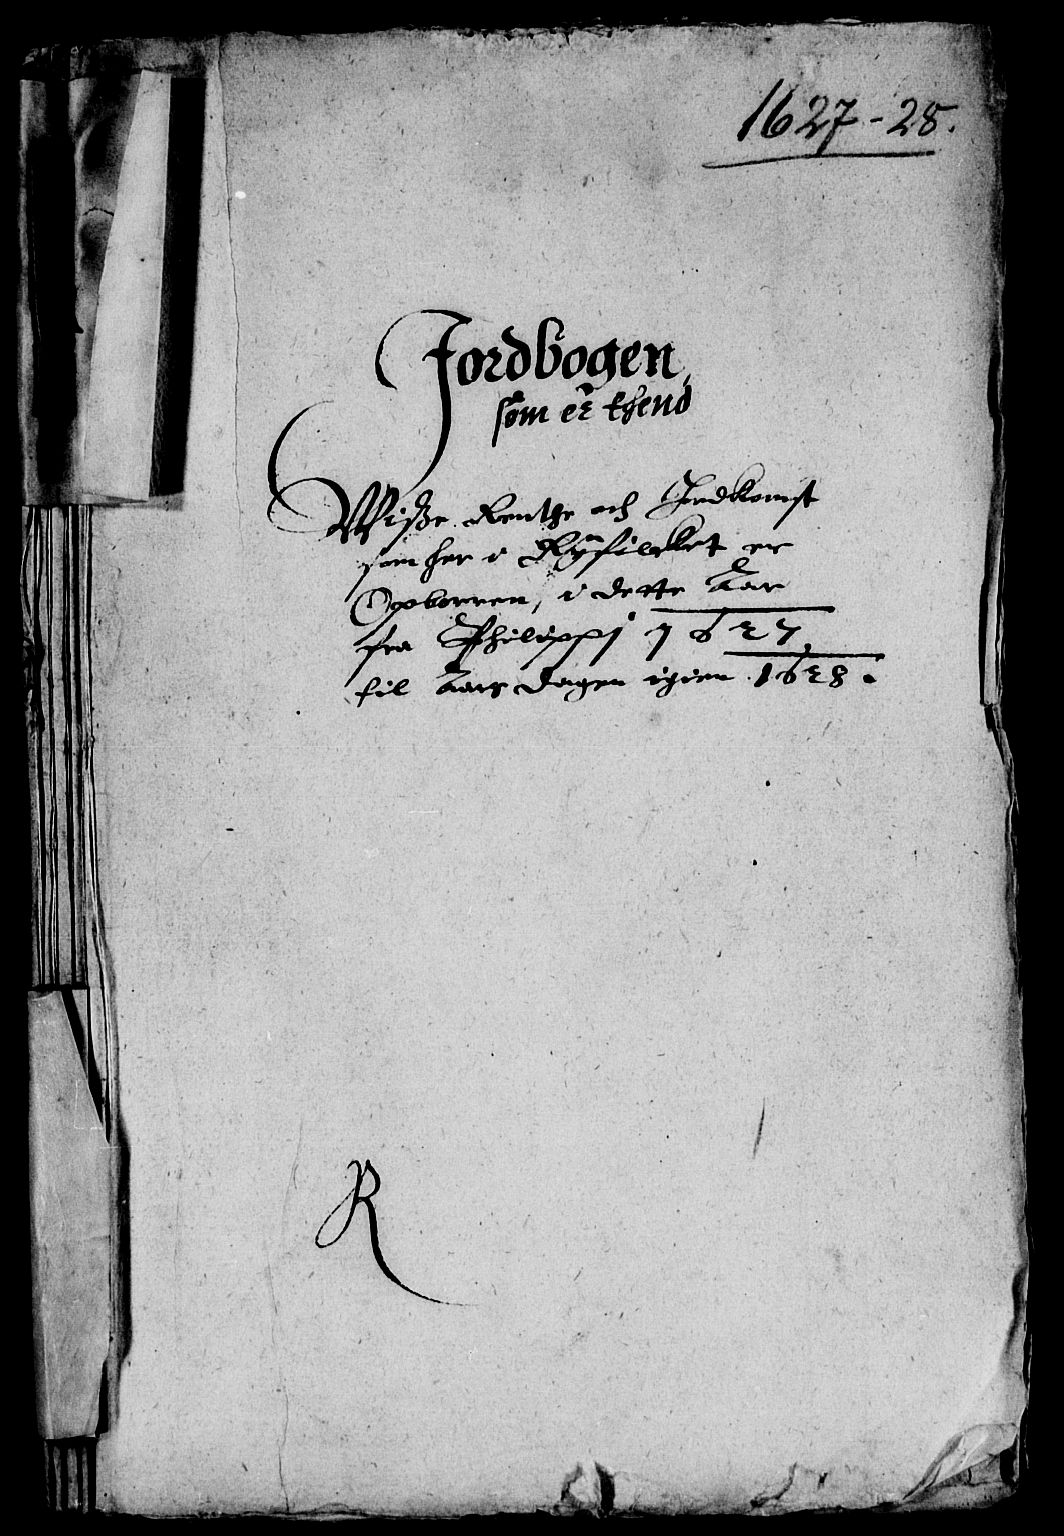 1627-28.
Jordbogen,
som er thend
Wisse Renthe och Indkomst
som her i Ryfilcket er
Opborren, i dette Aar
fra Philippi 1627,
til Aars dagen igien 1628.
R